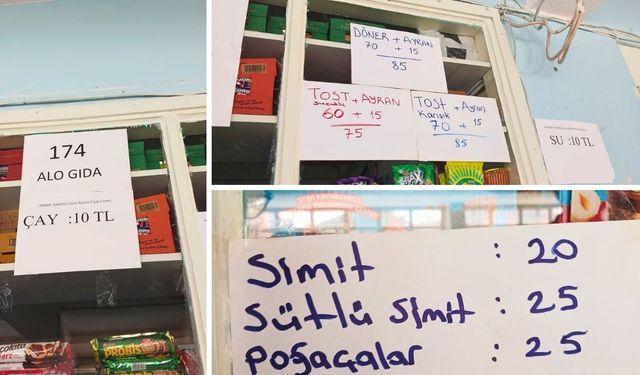 174
ALO GIDA
Atatürk Anadolu Lisesi Kantin Fiyat Listesi
ÇAY :10 TL
PROBİS
DÖNER + AYRAN
70 + 15
85
TOST + AYRAN
sucuklu
60 + 15
75
TOST + Ayran
Karışık
70 + 15
85
SU :10 TL
Simit : 20
Sütlü Simit : 25
Poğaçalar : 25